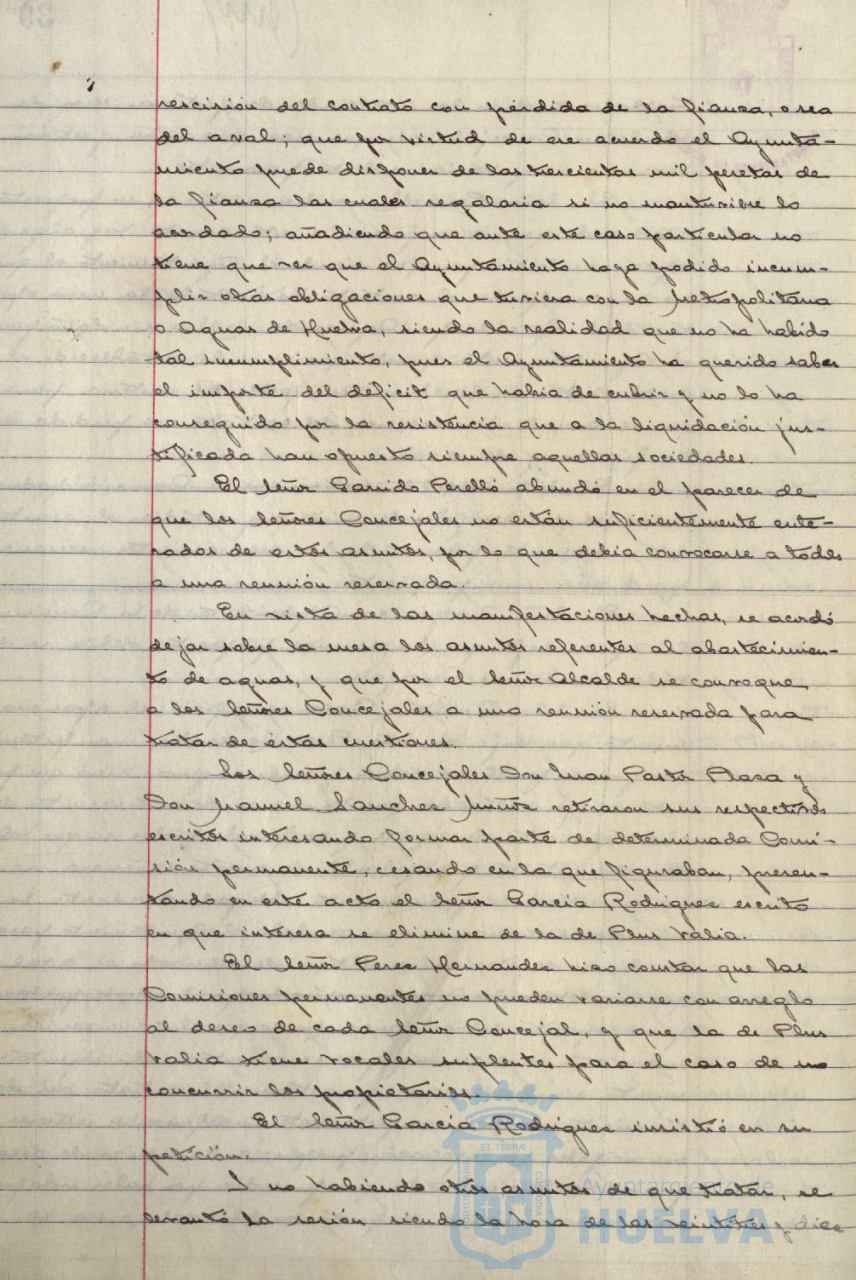 rescisión del contrato con pérdida de la fianza, o sea
del aval; que por virtud de ese acuerdo el Ayunta-
miento puede disponer de las trescientas mil pesetas de
la fianza las cuales regalaria si no mantuviese lo
acordado; añadiendo que ante este caso particular no
tiene que ver que el Ayuntamiento haya podido incum-
plir otras obligaciones que tuviera con la Metropolitana
o Aguas de Huelva, siendo la realidad que no ha habido
tal incumplimiento, pues el Ayuntamiento ha querido saber
el importe del déficit que habia de cubrir y no lo ha
conseguido por la resistencia que a la liquidación jus-
tificada han opuesto siempre aquellas sociedades.
El Señor Garrido Perelló abundó en el parecer de
que los Señores Concejales no están suficientemente ente-
rados de estos asuntos, por lo que debia convocarse a todos
a una reunión reservada.
En vista de las manifestaciones hechas, se acordó
dejar sobre la mesa los asuntos referentes al abastecimien-
to de aguas, y que por el Señor Alcalde se convoque
a los Señores Concejales a una reunión reservada para
tratar de éstas cuestiones.
Los Señores Concejales Don Juan Pastor Plaza y
Don Manuel Sanchez Muñoz retiraron sus respectivos
escritos interesando formar parte de determinada Comi-
sión permanente, cesando en la que figuraban, presen-
tando en este acto el Señor Garcia Rodriguez escrito
en que interesa se elimine de la de Plus Valia.
El Señor Perez Hernandez hizo constar que las
Comisiones permanentes no pueden variarse con arreglo
al deseo de cada Señor Concejal, y que la de Plus
Valia tiene vocales suplentes para el caso de no
concurrir los propietarios.
El Señor Garcia Rodriguez insistió en su
petición.
Y no habiendo otros asuntos de que tratar, se
levantó la sesión siendo la hora de las veintitres y diez
ET TERRÆ
Ayuntamiento de
HUELVA